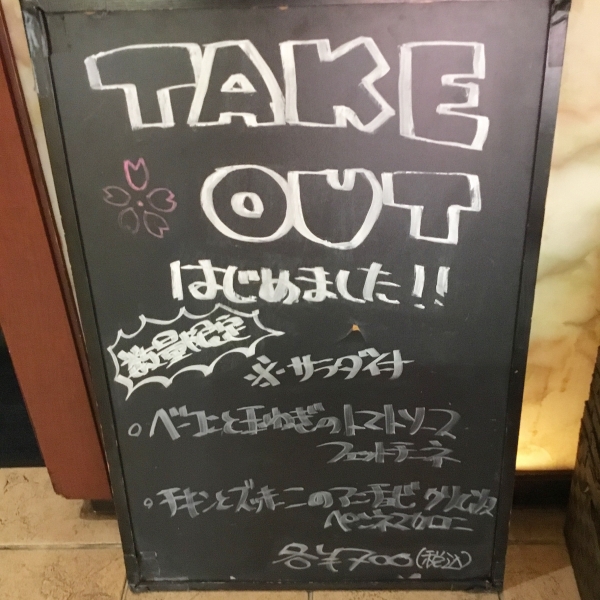 TAKE
OUT
はじめました!!
数量限定
※サラダ付
○ベーコンと玉ねぎのトマトソース
フェットチーネ
・チキンとズッキーニのアラビアータ
ペンネマカロニ
各¥700(税込)